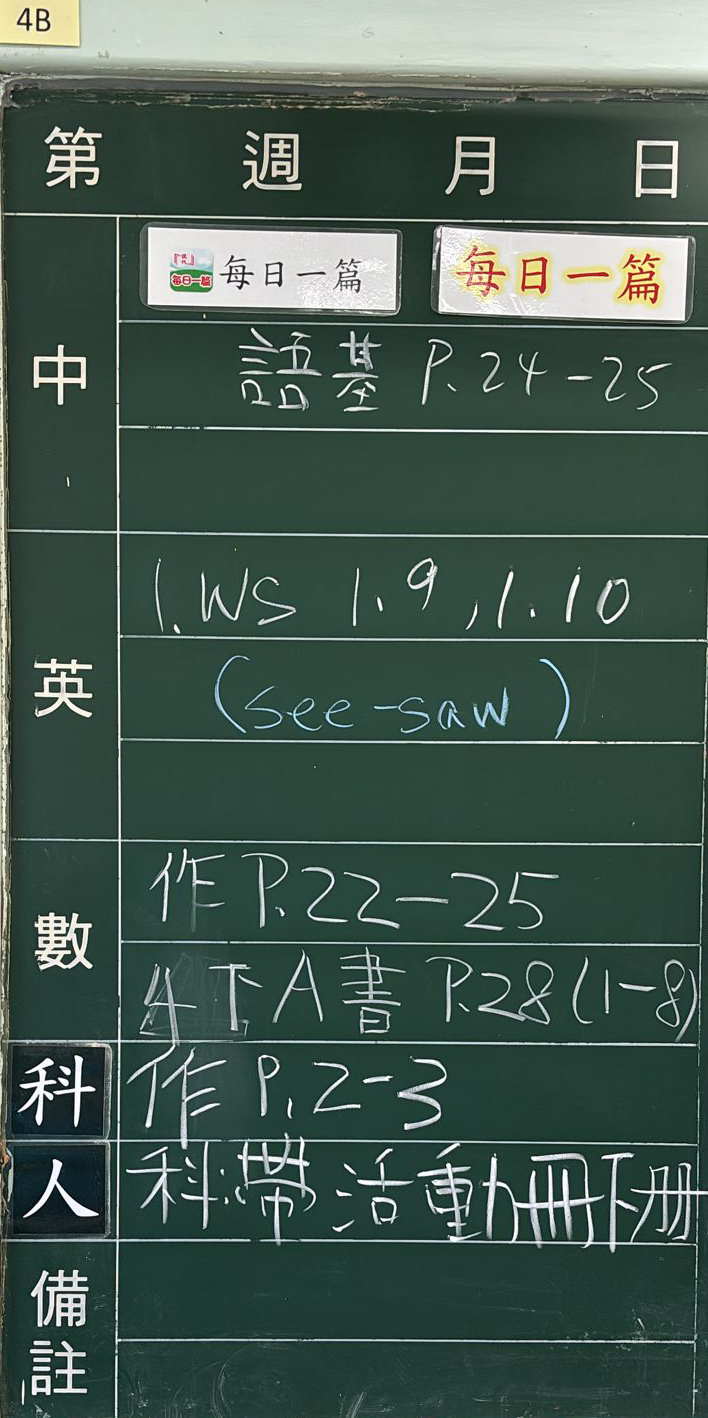 4B
第 週 月 日
中
每日一篇 每日一篇
語基 P.24-25
英
1.WS 1.9,1.10
(see-saw)
數
作 P.22-25
4下A書 P.28(1-8)
科 作 P.2-3
人 科:帶活動冊下册
備註